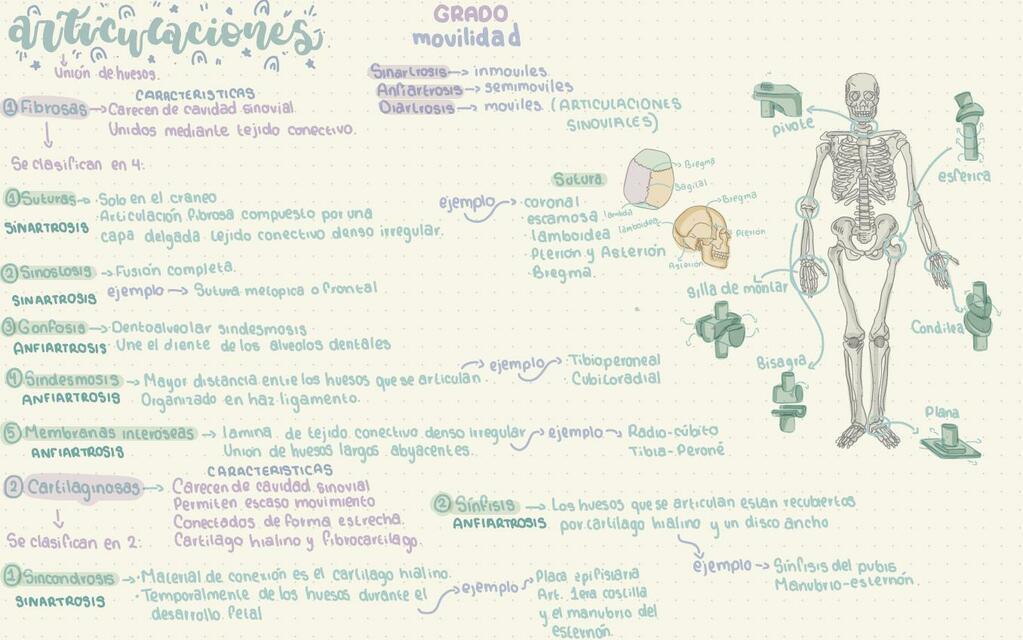 articulaciones
Unión de huesos.
GRADO
movilidad
Sinartrosis → inmoviles
Anfiartrosis → semimoviles
Diartrosis → moviles. (ARTICULACIONES
SINOVIALES)
CARACTERISTICAS
① Fibrosas → Carecen de cavidad sinovial
Unidos mediante tejido conectivo.
Se clasifican en 4:
① Suturas → · Solo en el craneo
SINARTROSIS · Articulación fibrosa compuesto por una
capa delgada tejido conectivo denso irregular.
ejemplo →
Sutura
· coronal
escamosa
· lamboidea
· Pterion y Asterión
· Bregma.
Bregma
Sagital
lambda
lamboidea
Bregma
Pterion
Asterion
② Sinostosis → Fusión completa.
SINARTROSIS ejemplo → Sutura metopica o frontal
③ Gonfosis → Dentoalveolar sindesmosis
ANFIARTROSIS Une el diente de los alveolos dentales
④ Sindesmosis → Mayor distancia entre los huesos que se articulan.
ANFIARTROSIS Organizado en haz. ligamento.
→ ejemplo → · Tibioperoneal
· Cubitoradial
⑤ Membranas interóseas → lamina de tejido conectivo denso irregular
ANFIARTROSIS Union de huesos largos abyacentes.
→ ejemplo → Radio-cúbito
Tibia-Peroné
CARACTERISTICAS
② Cartilaginosas → Carecen de cavidad sinovial
Permiten escaso movimiento
Conectados de forma estrecha.
Cartilago hialino y fibrocartilago.
Se clasifican en 2:
① Sincondrosis → · Material de conexión es el cartilago hialino.
SINARTROSIS · Temporalmente de los huesos durante el
desarrollo fetal
→ ejemplo → Placa epifisiaria
Art. 1era costilla
y el manubrio del
esternón.
② Sínfisis → Los huesos que se articulan estan recubiertos
ANFIARTROSIS por cartilago hialino y un disco ancho
ejemplo → Sínfisis del pubis
Manubrio-esternón.
pivote
esferica
silla de montar
Condilea
Bisagra
Plana